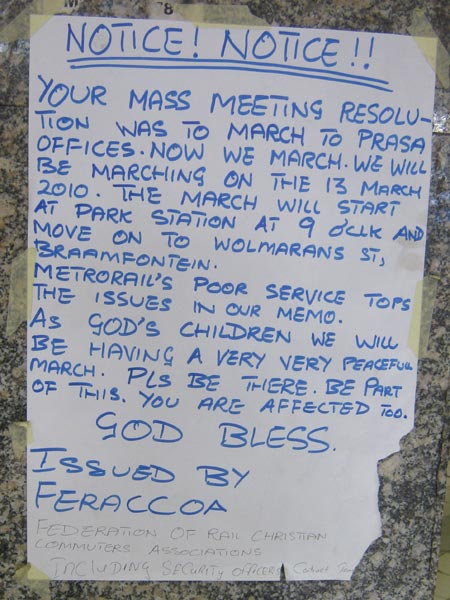 NOTICE! NOTICE!!
YOUR MASS MEETING RESOLU-
TION WAS TO MARCH TO PRASA
OFFICES. NOW WE MARCH. WE WILL
BE MARCHING ON THE 13 MARCH
2010. THE MARCH WILL START
AT PARK STATION AT 9 O'CLK AND
MOVE ON TO WOLMARANS ST,
BRAAMFONTEIN.
METRORAIL'S POOR SERVICE TOPS
THE ISSUES IN OUR MEMO.
AS GOD'S CHILDREN WE WILL
BE HAVING A VERY VERY PEACEFULL
MARCH. PLS BE THERE. BE PART
OF THIS. YOU ARE AFFECTED TOO.
GOD BLESS.
ISSUED BY
FERACCOA
FEDERATION OF RAIL CHRISTIAN
COMMUTERS ASSOCIATIONS
INCLUDING SECURITY OFFICERS Contact